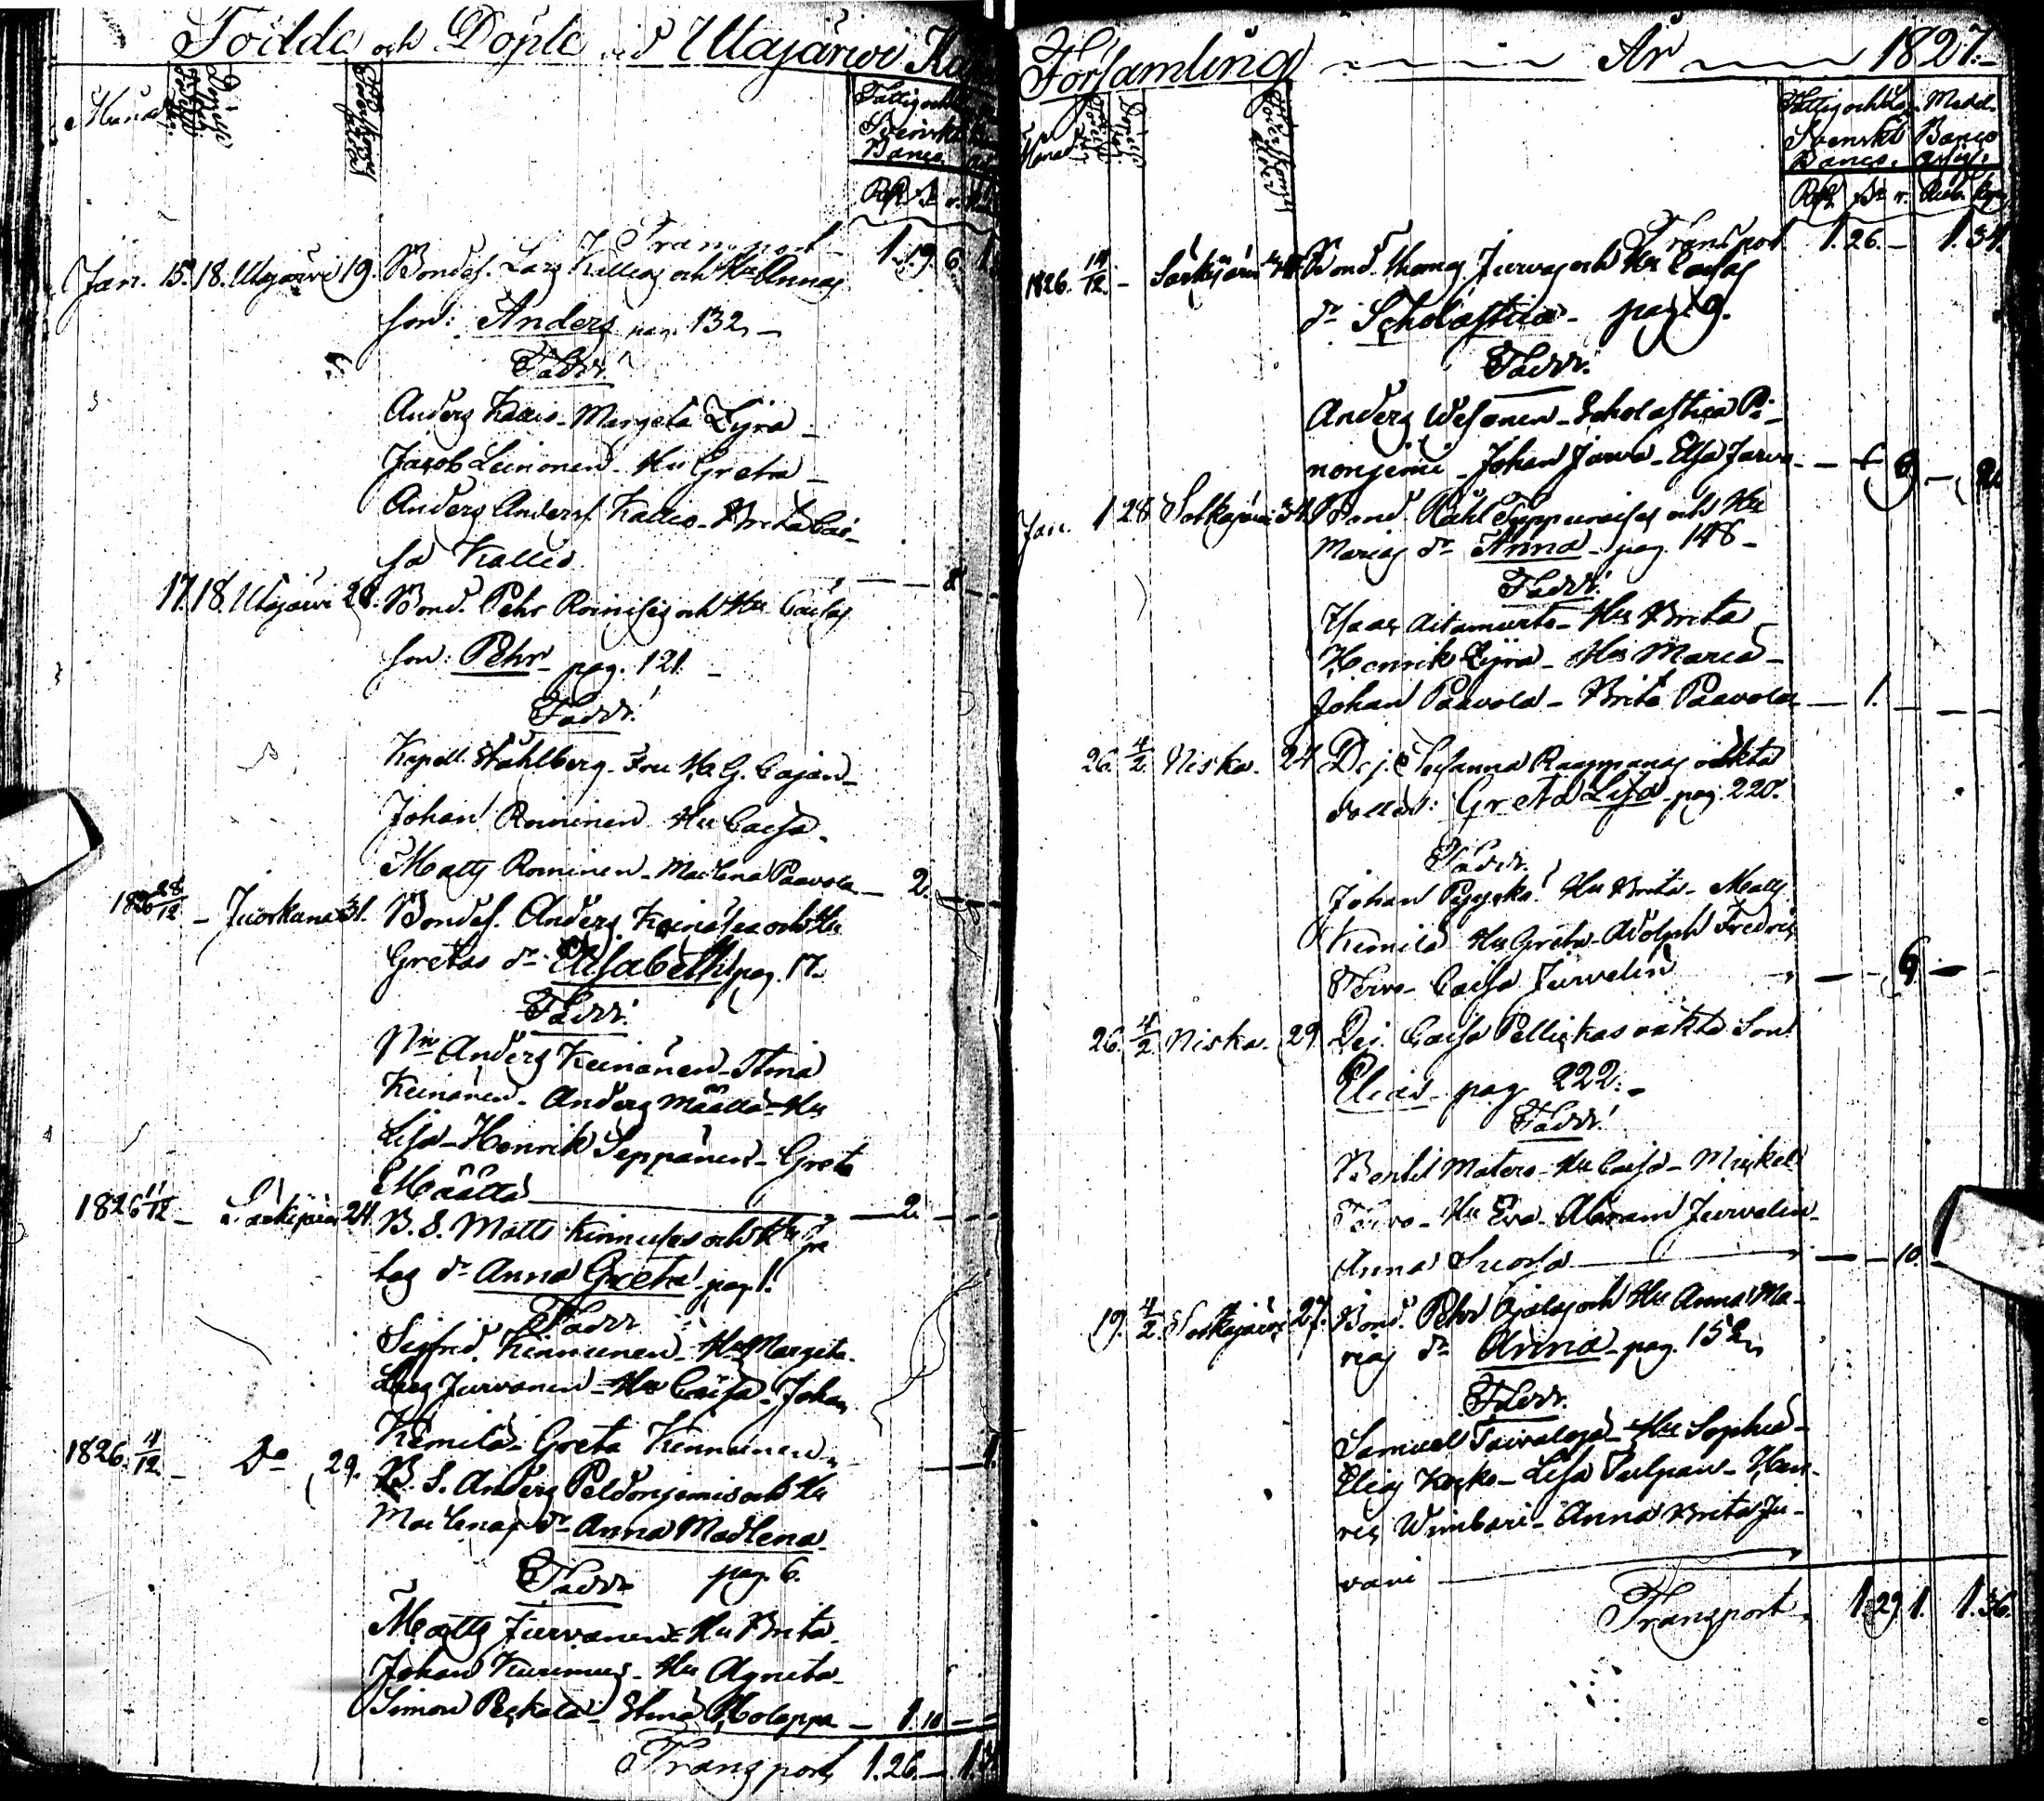 Födde och Döpte Utajärwi
Månad
Fattig och
Svenska
Banco
Transport 1. 19. 6. 1.
Jan. 15. 18. Utajärvi 19. Bondes. Lars Kallios och Hu Annas
son: Anders pag. 132.
Faddr:
Anders Kallio - Margeta Lyra -
Jacob Leinonen - Hu Greta -
Anders Anders. Kallio - Brita Cai-
sa Kallio 8
17. 18. Utajärvi 28. Bond. Pehr Roinises och Hu Caisas
son: Pehr pag. 121.
Faddr!
Kapell. Ståhlberg - Fru H. G. Cajan -
Johan Roininen Hu Caisa -
Matts Roininen - Madlena Paavola - 2.
1826 28/12 - Juorkuna 31. Bondes. Anders Keinäses och Hu
Gretas dr Elisabeth pag. 17.
Faddr.
Nm Anders Keinänen - Stina
Keinänen - Anders Määttä - Hu
Lisa - Henrik Seppänen - Greta
Määttä - 2. -
1826 11/12 - Särkijärvi 24. B. S. Matts Kinnuses och Hu Gre
tas dr Anna Greta pag. 1.
Faddr
Sigfrid Kinnunen - Hu Margeta -
Lars Jurvanen - Hu Caisa - Johan
Kemilä - Greta Kinnunen - 1.
1826. 4/12. - Do 29. B. S. Anders Peldoniemis och Hu
Madlenas dr Anna Madlena
Faddr pag. 6.
Matts Jurvanen - Hu Brita -
Johan Kurimus - Hu Agneta -
Simon Peckala - Stina Holappa - 1. 10 -
Transport, 1. 26. -
Församling År 1827.
Månad
Fattig och
Medel.
Svenska Banco
Banco. Assig:
Transport 1. 26. - 1. 34.
1826. 14/12. - Särkijärvi Bond. Thomas Jurvas och Hu Caisas
dr Scholastica - pag. 9.
Faddr.
Anders Wesanen - Scholastica Pi-
noniemi - Johan Jarva - Elsa Jarva -
Jan. 1 28. Sotkajärvi 34. Bond. Påhl Typpuraises och Hu
Marias dr Anna - pag. 148 -
Faddr!
Isaac Aitamurto - Hu Brita
Henrik Lyra - Hu Maria -
Johan Paavola - Brita Paavola - 1.
26. 4/2. Niska. 24. D. j. Susanna Raappanas oäkta
dotter: Greta Lisa - pag. 220.
Faddr.
Johan Pyycko - Hu Brita - Matts
Kemilä - Hu Greta - Adolph Fredric
Tervo - Caisa Jurvelin - 6. -
26. 4/2. Niska. 29. D. j. Caisa Pellickas oäkta Son
Elias - pag. 222. -
Faddr!
Bertil Matero - Hu Caisa - Mickel
Tervo - Hu Eva - Abram Jurvelin -
Anna Suorsa - 10.
19. 4/2. Sotkajärvi 27. Bond. Pehr Ojalas och Hu Anna Ma-
rias dr Anna - pag. 152.
Faddr.
Samuel Toivaloja - Hu Sophia -
Elias Kocko - Lisa Tulpan - Hen-
ric Wimbari - Anna Brita Ju-
vani
Transport, 1. 29. 1. 1. 36.